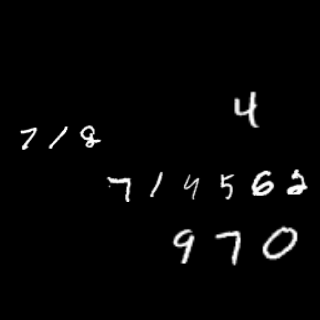 4
718
714562
970